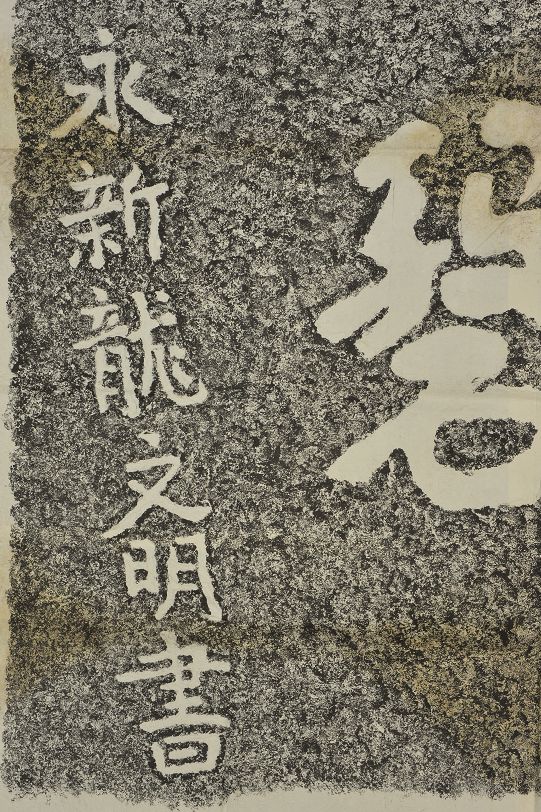 碧
永新龍文明書